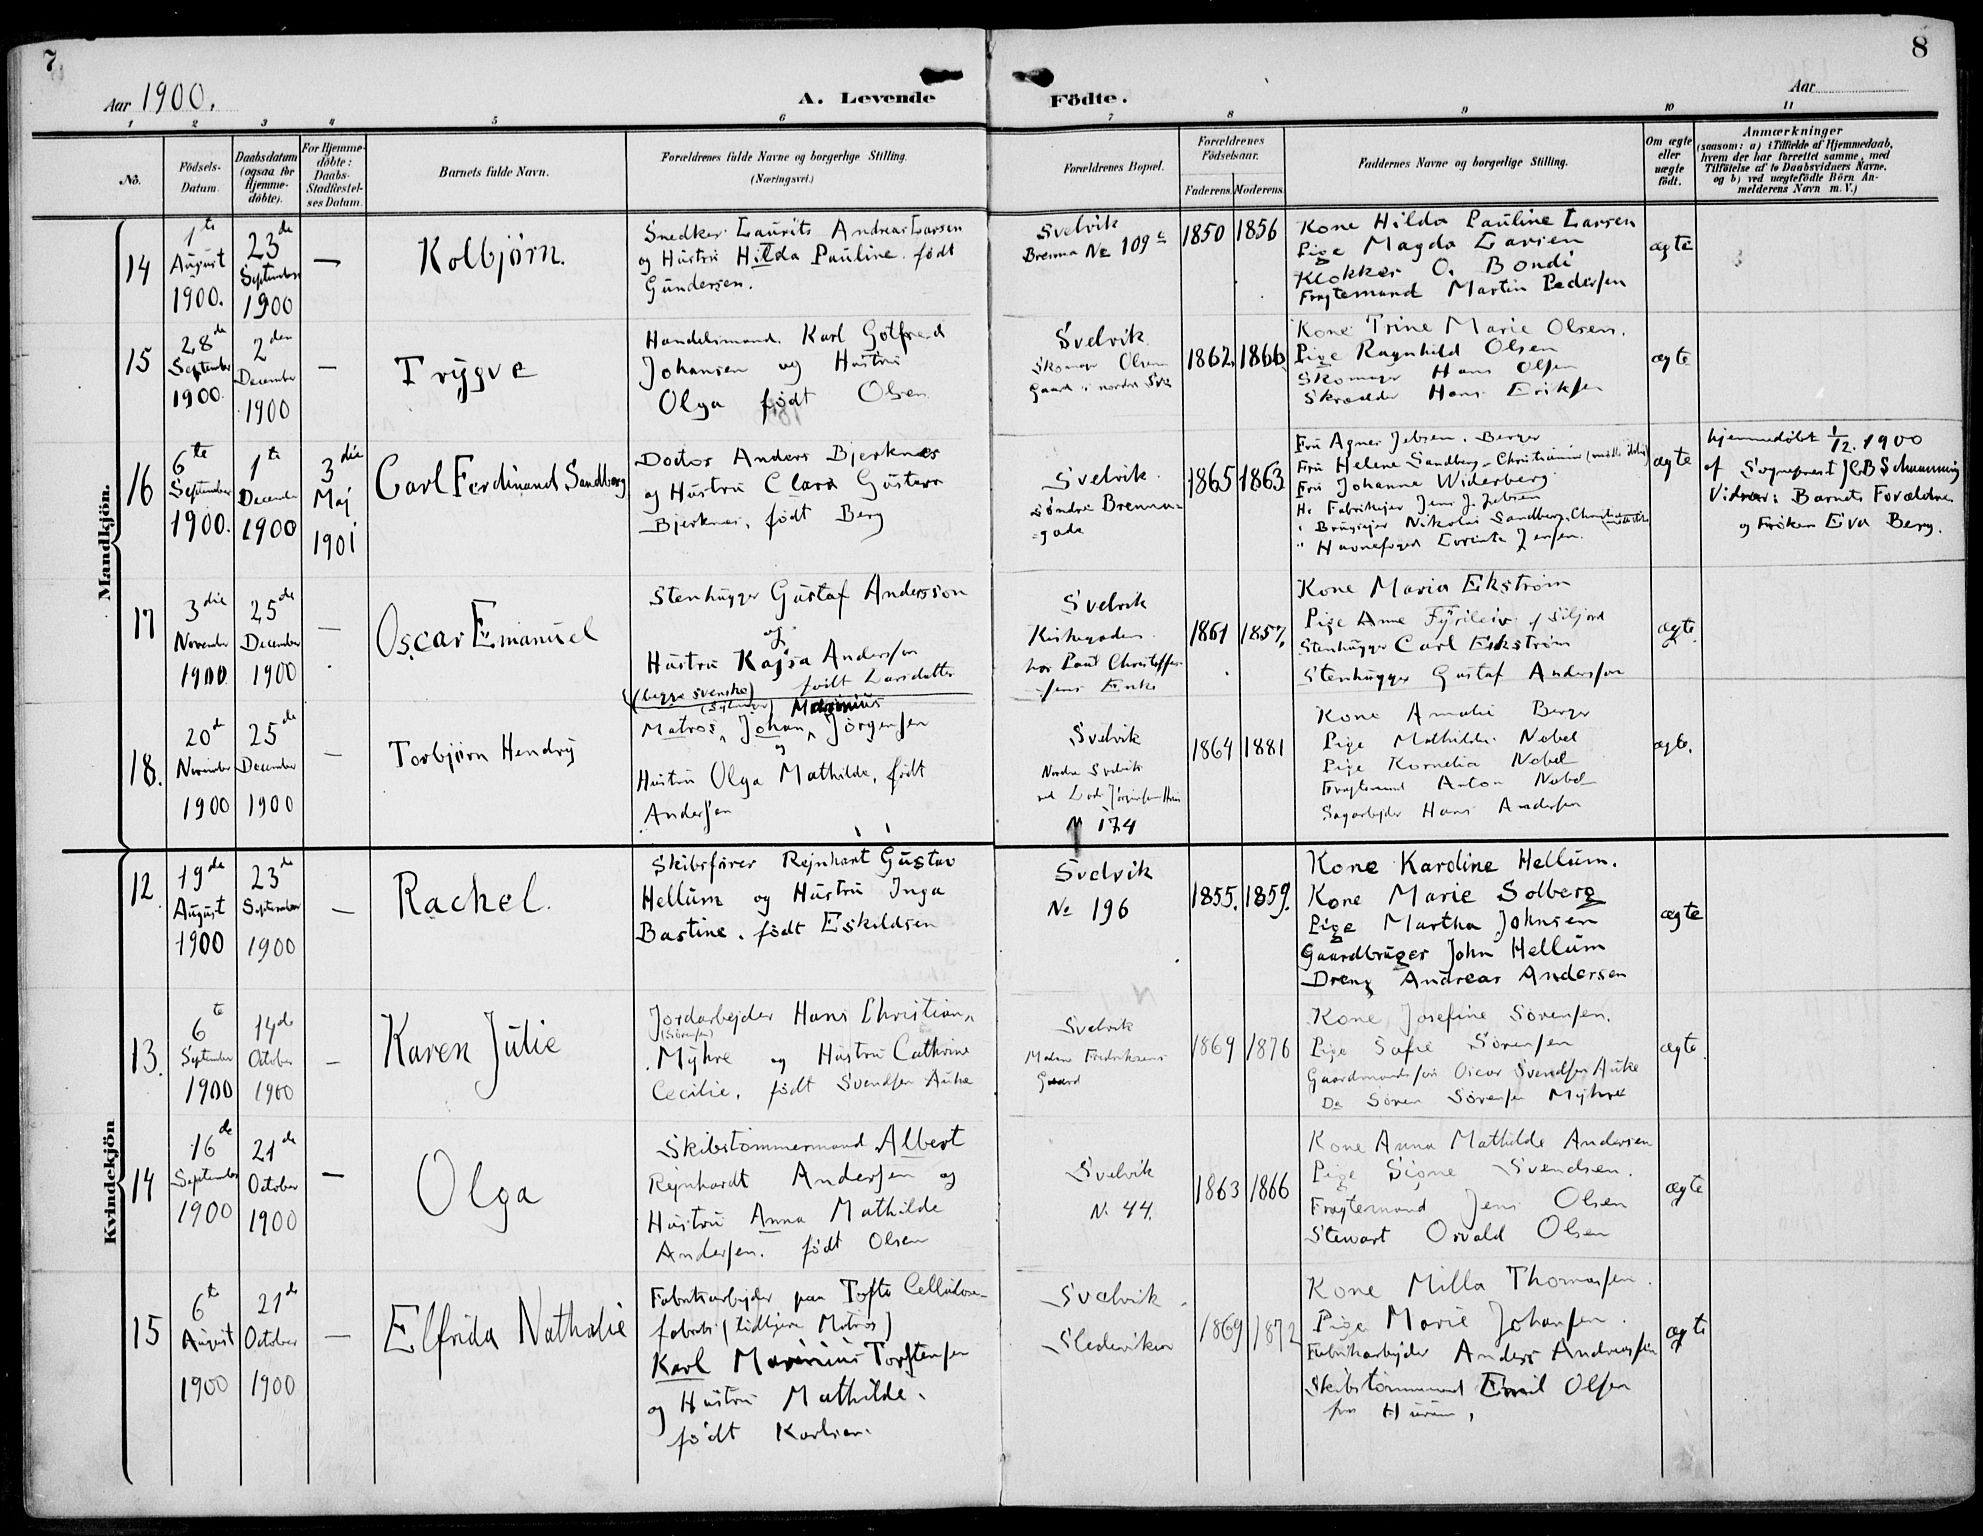 7
8
Aar 1900.
A. Levende
Födte.
Aar
1 2 3 4 5 6 7 8 9 10 11
No.
Födsels-
Datum.
Daabsdatum
(ogsaa for
Hjemme-
döbte).
For Hjemme-
döbte:
Daabs-
Stadfæstel-
ses Datum.
Barnets fulde Navn.
Forældrenes fulde Navne og borgerlige Stilling.
(Næringsvei.)
Forældrenes Bopæl.
Forældrenes
Födselsaar.
Faderens. Moderens.
Faddernes Navne og borgerlige Stilling.
Om ægte
eller
uægte
födt.
Anmærkninger
(saasom: a) i Tilfælde af Hjemmedaab,
hvem der har forrettet samme, med
Tilföielse af to Daabsvidners Navne.
og b) ved uægtefödte Börn An-
melderens Navn m. V.)
Mandkjön.
14
1te
August
1900.
23de
September
1900
—
Kolbjørn.
Snedker Laurits Andreas Larsen
og Hustru Hilda Pauline født
Gundersen.
Svelvik
Brenna No 109c
1850
1856
Kone Hilda Pauline Larsen
Pige Magda Larsen
Klokker O. Bondi
Fragtemand Martin Pedersen
ægte
15
28de
September
1900.
2den
December
1900
—
Trygve
Handelsmand. Karl Gotfred
Johansen og Hustru
Olga født Olsen
Svelvik
Skomager Olsens
Gaard i nordre Svelv
1862.
1866
Kone Trine Marie Olsen.
Pige Ragnhild Olsen
Skomager Hans Olsen
Skrædder Hans Eriksen
ægte
16
6te
September
1900.
1te
December
1900
3die
Maj
1901
Carl Ferdinand Sandberg
Doctor Anders Bjerknes
og Hustru Clara Gustava
Bjerknes, født Berg
Svelvik.
Søndre Brenna-
-gade
1865
1863
Fru Agnes Jebsen. Berger
Fru Helene Sandberg - Christiania
Fru Johanne Widerberg
Hr. Fabrikejer Jens J. Jebsen
" Brugsejer Nikolai Sandberg, Christiania
" Havnefoged Jensen.
ægte
hjemmedøbt 1/12. 1900
af Sognepræst
Vidner: Barnets Forældre
og Frøken Eva Berg.
17
3die
November
1900
25de
December
1900
—
Oscar Emanuel
Stenhugger Gustaf Andersson
og
Hustru Kajsa Andersson
(begge svenske) født Larsdatter
Svelvik
Kirkegaden
hos Paul Christoffer-
sens Enke
1861
1857.
Kone Maria Ekström
Pige Anne
Stenhugger Carl Ekström
Stenhugger Gustaf Andersson
ægte.
18.
20de
November
1900
25de
December
1900
—
Torbjørn Hendry
Marinius
Matros, Johan Jörgensen
og
Hustru Olga Mathilde, født
Andersen
Svelvik
Nordre Svelvik
ved Lods Jörgensens Hus
N 174
1864
1881
Kone Amalie Berger
Pige Mathilde Nebel
Pige Kornelia Nebel
Fragtemand Anton Nebel
Sagarbejder Hans Andersen
ægte.
Kvindekjön
12.
19de
August
1900
23de
September
1900
—
Rachel.
Skibsfører Rejnhart Gustav
Hellum og Hustru Inga
Bastine, født Eskildsen
Svelvik
No 196
1855.
1859.
Kone Karoline Hellum.
Kone Marie Solberg
Pige Martha Johnsen
Gaardbruger John Hellum
Dreng Andreas Andersen
ægte
13.
6te
September
1900
14de
October
1900
—
Karen Julie
Jordarbejder Hans Christian
(Sörensen)
Myhre og Hustru Cathrine
Cecilie, født Svendsen Auke
Svelvik
Madam Fredriksens
Gaard
1869
1876
Kone Josefine Sörensen.
Pige Sofie Sörensen
Gaardmandssön Oscar Svendsen Auke
Do Sören Sörensen Myhre
ægte.
14
16de
September
1900
21de
October
1900
—
Olga
Skibstømmermand Albert
Rejnhardt Andersen og
Hustru Anna Mathilde
Andersen. født Olsen
Svelvik
N. 44.
1863
1866
Kone Anna Mathilde Andersen
Pige Signe Svendsen.
Fragtemand Jens Olsen
Stewart Osvald Olsen
ægte
15
6te
August
1900
21de
October
1900
—
Elfrida Nathalie
Fabriksarbejder paa Tofte Cellulose-
fabrik (tidligere Matros)
Karl Marinius Torstensen
og Hustru Mathilde.
født Karlsen.
Svelvik.
Sledeviken
1869
1872
Kone Milla Thomassen.
Pige Marie Johansen.
Fabrikarbejder Anders Andreassen
Skibstömmermand Emil Olsen
fra Hurum,
ægte